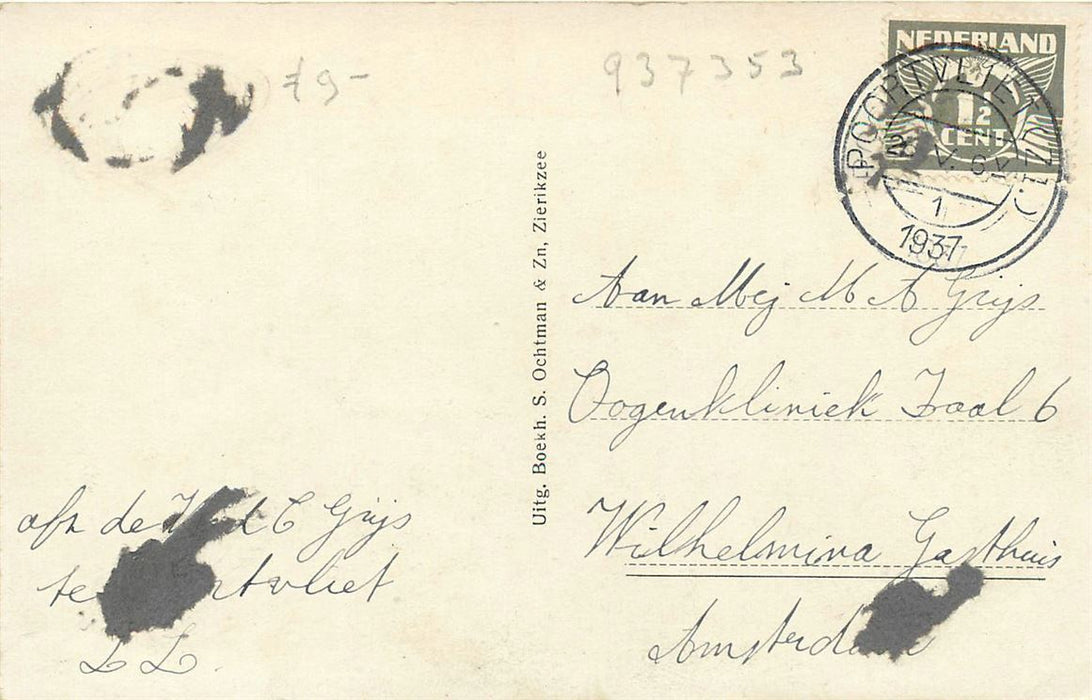 79-
937353
NEDERLAND
1½
CENT
POORTVLIET (ZLD.)
1
1937
Uitg. Boekh. S. Ochtman & Zn, Zierikzee
Aan Mej M A Grijs
Oogenkliniek Zaal 6
Wilhelmina Gasthuis
Amsterdam
afz de W d C Grijs
te Poortvliet